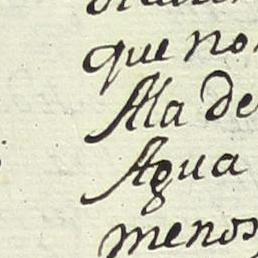 que no
Alla de
Agua
menos